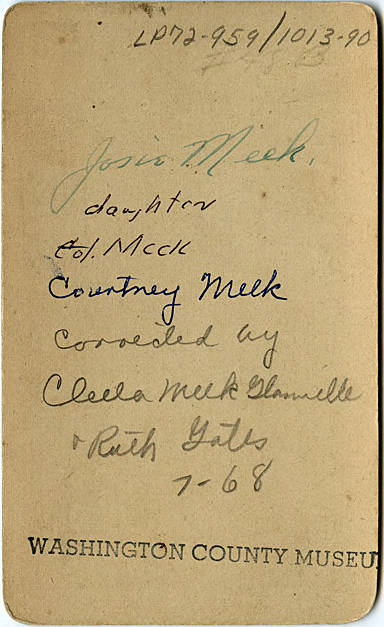 LP72-959/1013-90
Josie Meek.
daughter
Col. Meek
Courtney Meek
Corrected by
Meek Glanville
+ Ruth Gates
7-68
WASHINGTON COUNTY MUSEU